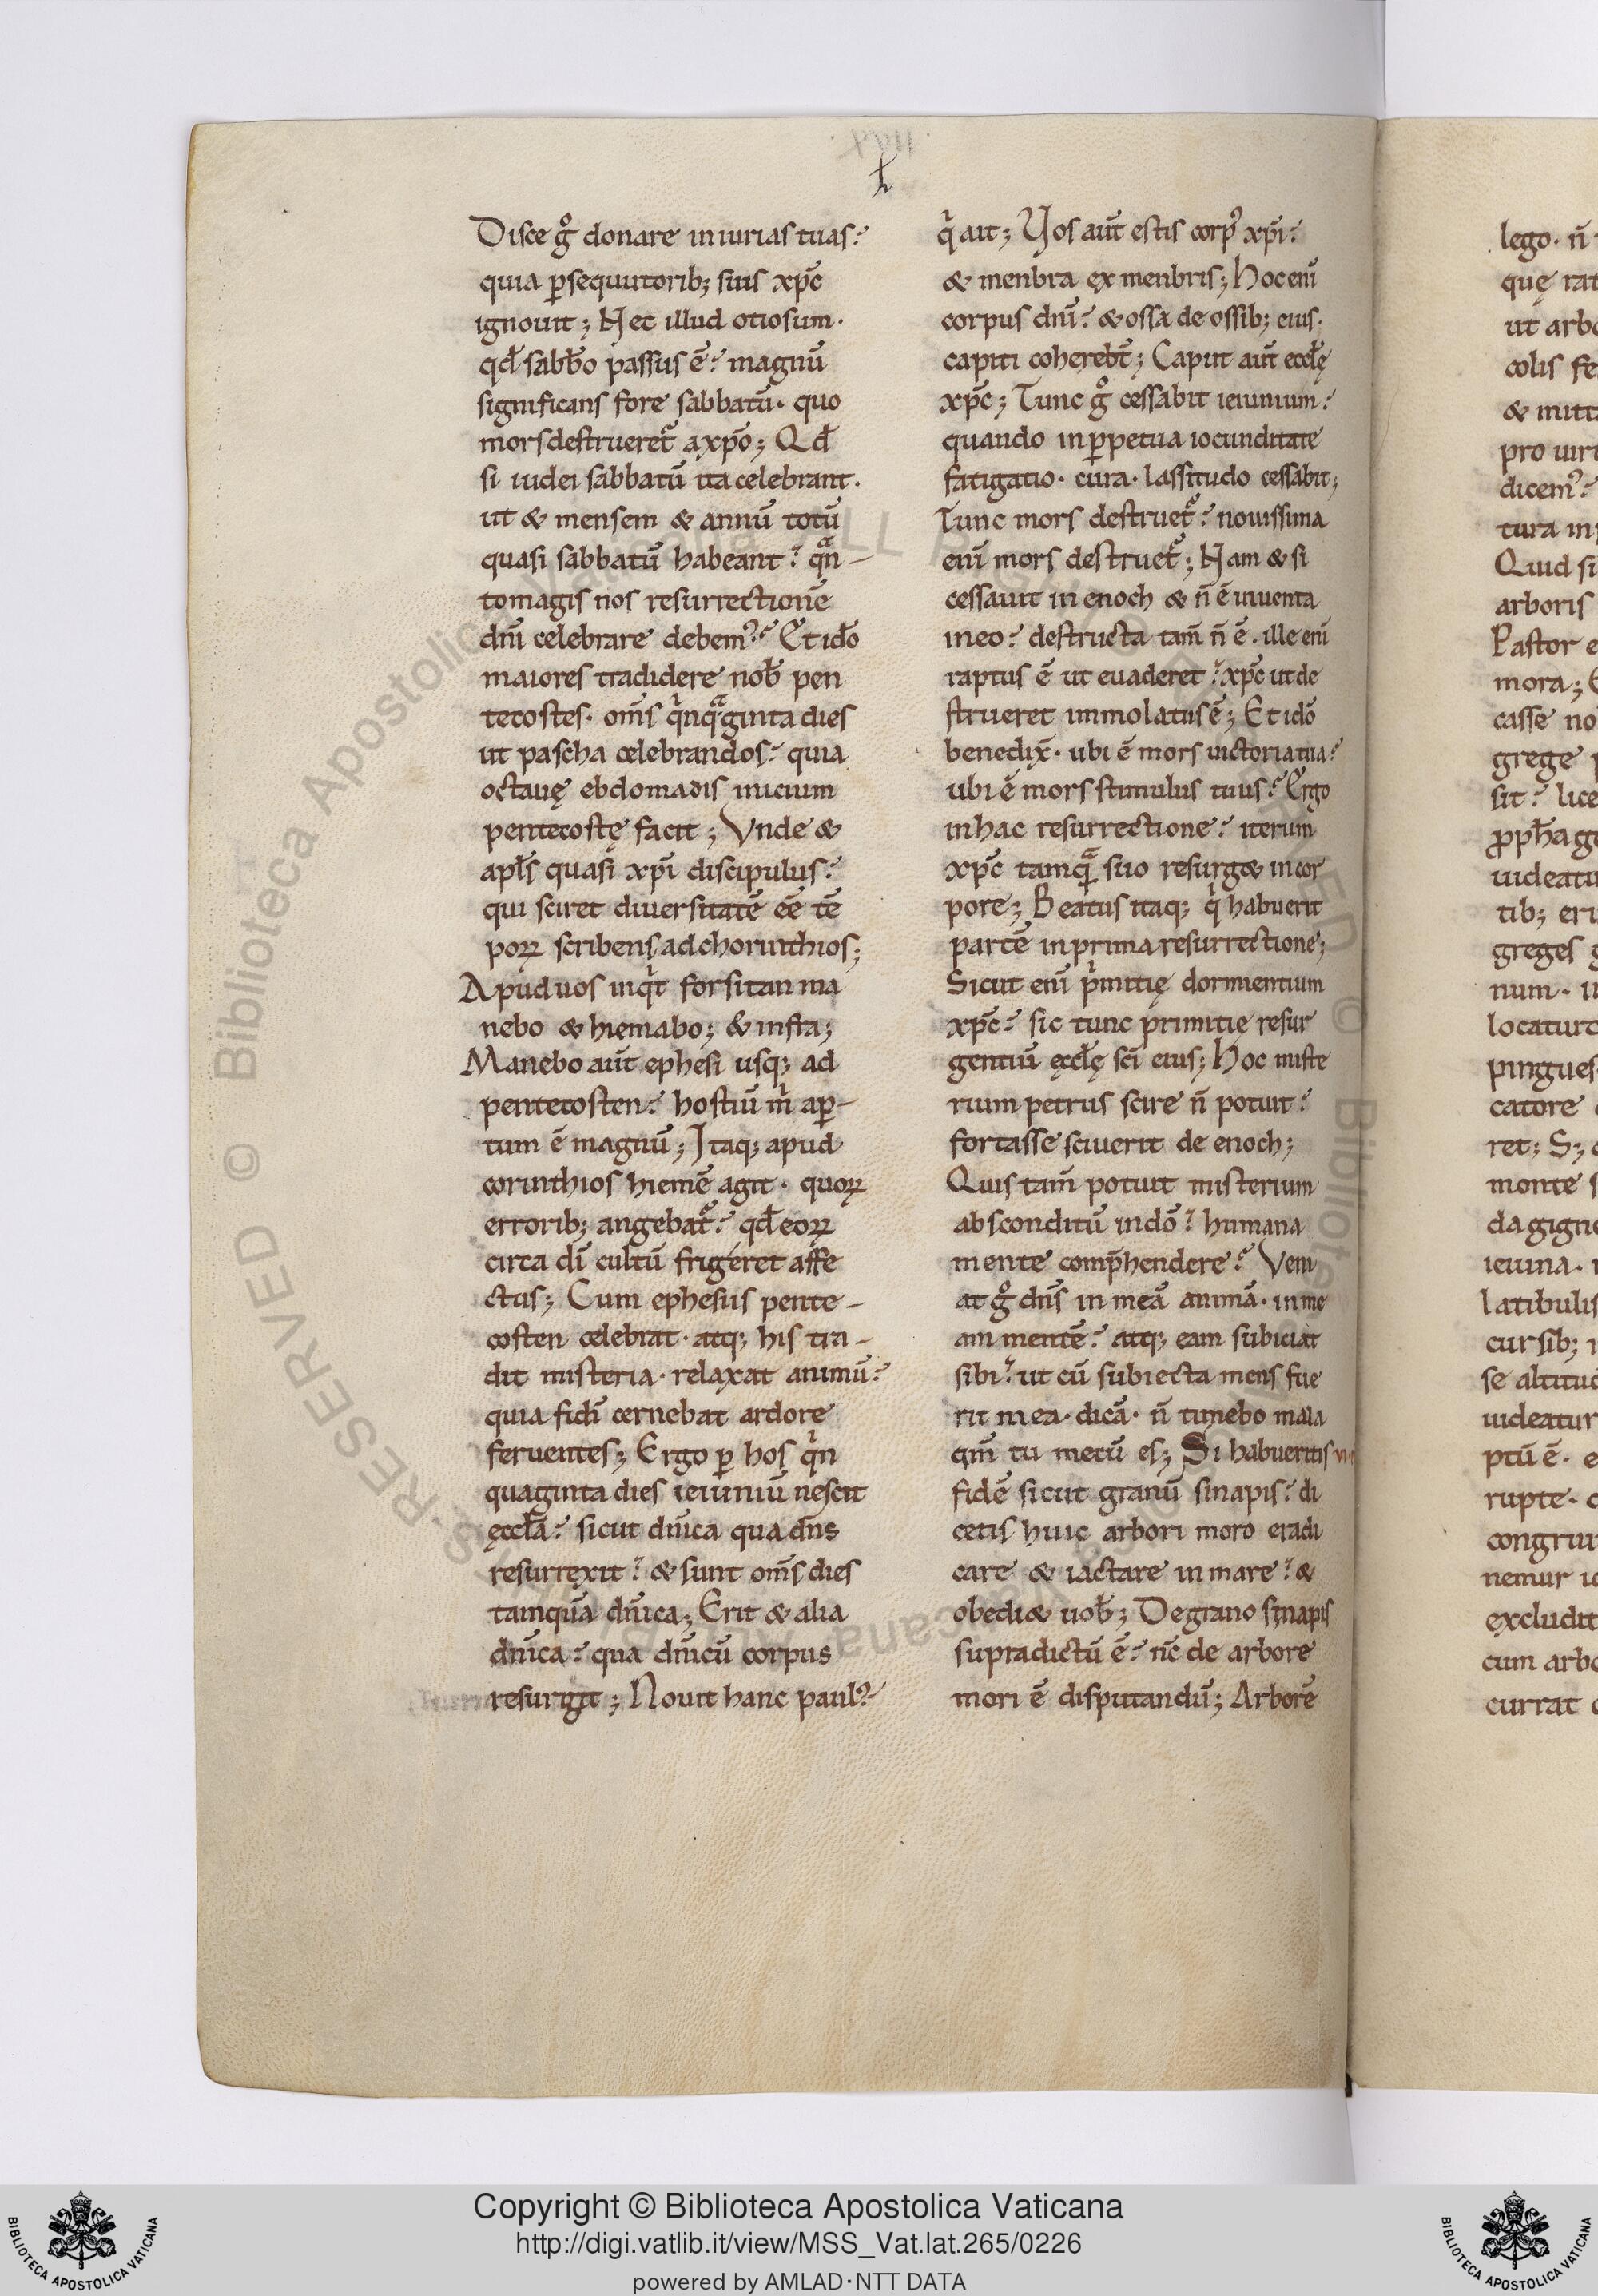 Disce gͦ donare iniurias tuas?
quia ꝑsequutorib; suis xp̄c
ignouit; Nec illud otiosum·
qđ sabbo̵ passus ē? magnū
significans fore sabbatū· quo
mors destrueret᷑ a xp̄o; Qđ
si iudei sabbatū ita celebrant·
ut & mensem & annū totū
quasi sabbatū habeant? qͣn-
to magis nos resurrectionē
dn̄i celebrare debem᷒? Et ido̵
maiores tradidere nob̵ pen
tecostes· om̄s qͥnqͣginta dies
ut pascha celebrandos? quia
octauę ebdomadis inicium
pentecostę facit; Vnde &
apl̄s quasi xp̄i discipulus?
qui sciret diuersitatē eē tē
porꝝ scribens ad chorinthios;
Apud uos inqͥt forsitan ma
nebo & hiemabo; & infra;
Manebo aūt ephesi usq; ad
pentecosten? hostiū m̍ apꝑ-
tum ē magnū; Itaq; apud
corinthios hiemē agit· quorꝝ
errorib; angebat᷑? qđ eorꝝ
circa dī cultū frigéret affe
ctus; Cum ephesiis pente-
costen celebrat· atq; his tra-
dit misteria· relaxat animū?
quia fidī cernebat ardore
feruentes; Ergo ꝑ hos qͥn
quaginta dies ieiuniū nescit
ęccl̄a? sicut dn̄ica qua dn̄s
resurrexit? & sunt om̄s dies
tamquā dn̄ica; Erit & alia
dn̄ica? qua dn̄icū corpus
resurgit; Nouit hanc paul᷒?
qͥ ait; Vos aūt estis corp᷒ xp̄i?
& menbra ex menbris; Hoc enī
corpus dn̄i? & ossa de ossib; eius·
capiti coherebt̄; Caput aūt eccl̄ę
xp̄c; Tunc gͦ cessabit ieiunium?
quando in ꝑpetua iocunditate
fatigatio· cura· lassitudo cessabit;
Tunc mors destruet᷑? nouissima
enī mors destruet᷑; Nam & si
cessauit in enoch & n̄ ē inuenta
in eo? destructa tam̄ n̄ ē· ille enī
raptus ē ut euaderet? xp̄c ut de
strueret immolatus ē; Et idō
benedix̄· ubi ē mors uictoria tua?
ubi ē mors stimulus tuus? Ergo
in hac resurrectione? iterum
xp̄c tamqͣ suo resurg& in cor
pore; Beatus itaq; qͥ habuerit
partē in prima resurrectione;
Sicut enī pͥmitię dormientium
xp̄c? sic tunc primitie resur
gentiū ęccl̄ę sc̄i eius; Hoc miste
rium petrus scire n̄ potuit?
fortasse sciuerit de enoch;
Quis tam̄ potuit misterium
absconditū in dō? humana
mente comp̄hendere? Veni
at gͦ dn̄s in meā animā· in me
am mentē? atq; eam subiciat
sibi? ut cū subiecta mens fue
rit mea· dicā· n̄ timebo mala
qm̄ tu mecū es; Si habueritis
fidē sicut granū sinapis? di
cetis huic arbori moro eradi
care & iactare in mare? &
obedi& uob̵; De grano sinapis
supradictū ē? nc̄ de arbore
mori ē disputandū; Arborē
lego· n̄
quę rat
ut arbo
colis fe
& mitt
pro uiri
dicem᷒?
tura in
Quid si
arboris
Pastor e
mora;
casse no
grege
sit? lice
ꝓph̄a g
uideatu
tib; eri
greges
num·
locatur
pingues
catore
ret; S;
monte s
da gign
ieiuna·
latibulis
cursib;
se altitud
uideatur
ptū ē· e
rupte· c
congru
nemur
excludit
cum arbo
currat
Copyright © Biblioteca Apostolica Vaticana
http://digi.vatlib.it/view/MSS_Vat.lat.265/0226
powered by AMLAD·NTT DATA
BIBLIOTECA APOSTOLICA VATICANA
BIBLIOTECA APOSTOLICA VATICANA